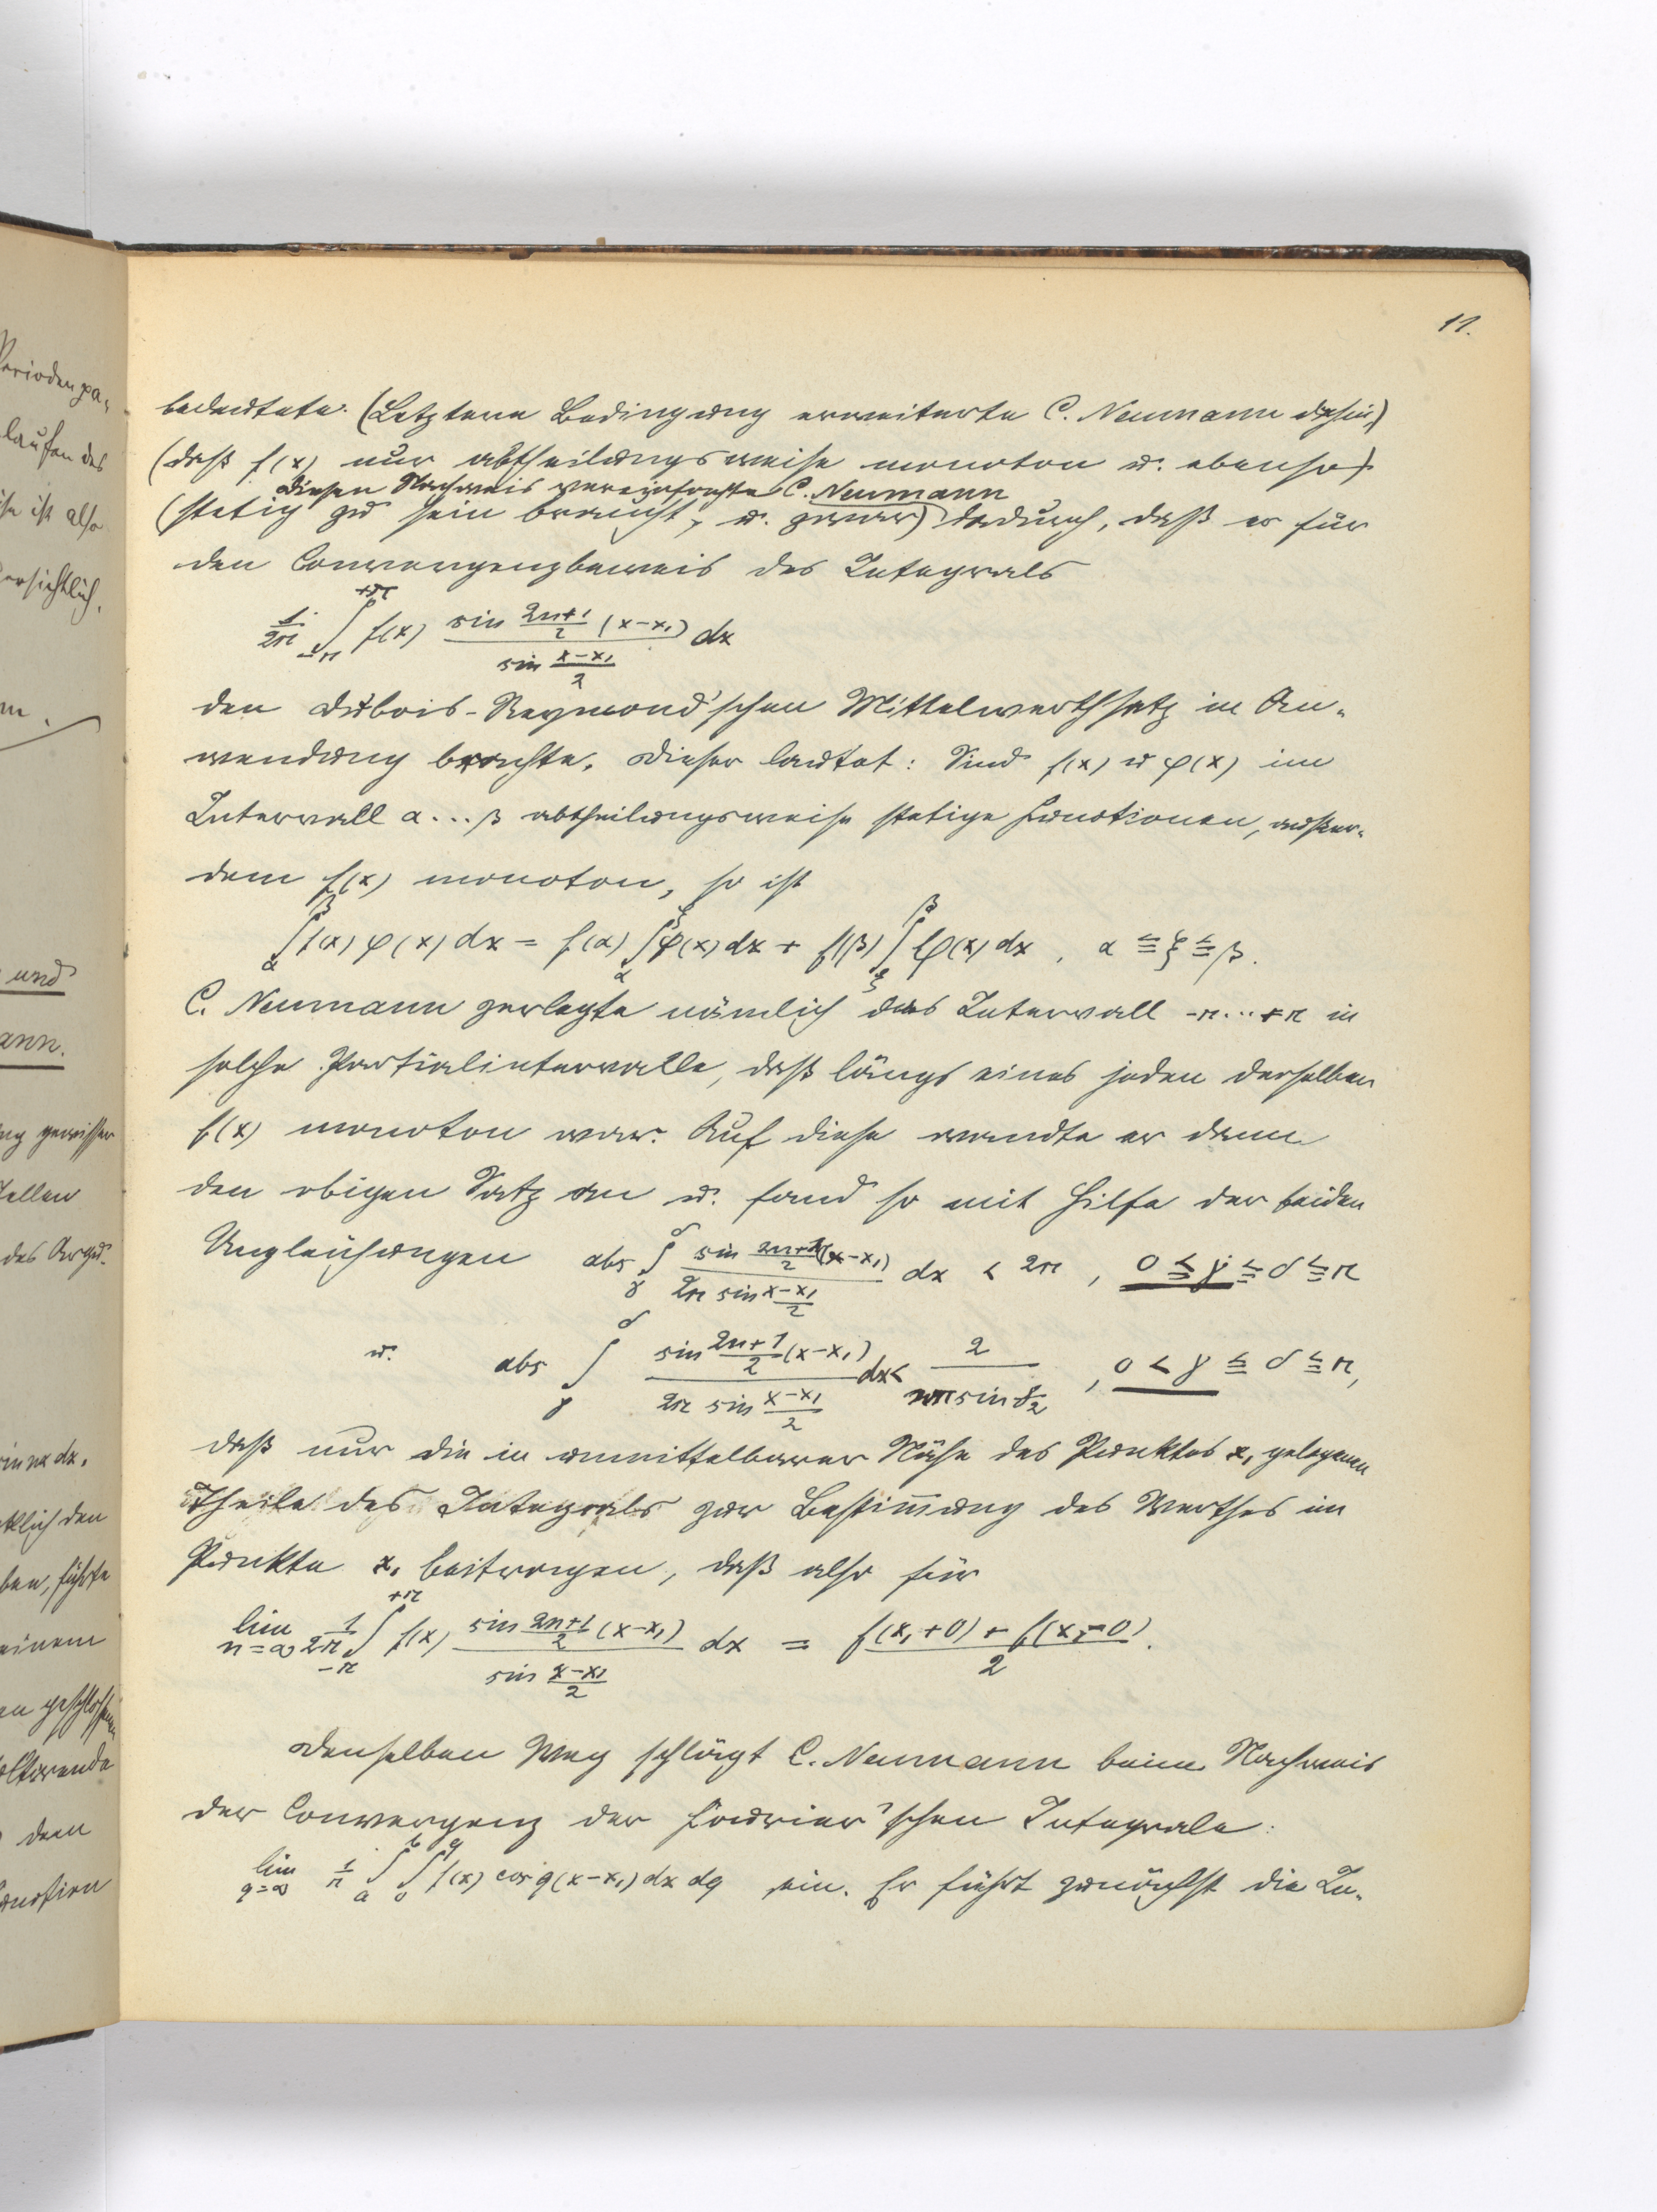 11.
bedeutete. (Letztere Bedingung erweiterte C. Neumann dahin,)
(daß f(x) nur abtheilungsweise monoton u. ebenso)
Diesen Nachweis vereinfachte C. Neumann
(stetig zu sein braucht, u. zwar) dadurch, daß er für
den Convergenzbeweis des Integrals
1/2π ∫_{-π}^{+π} f(x) sin (2n+1)/2 (x-x₁) / sin (x-x₁)/2 dx
den Dubois-Reymond'schen Mittelwerthsatz in An-
wendung brachte. Dieser lautet: Sind f(x) u φ(x) im
Intervall α...β abtheilungsweise stetige Functionen, außer-
dem f(x) monoton, so ist
∫_α^β f(x) φ(x) dx = f(α) ∫_α^ξ φ(x) dx + f(β) ∫_ξ^β φ(x) dx , α ≦ ξ ≦ β.
C. Neumann zerlegte nämlich das Intervall -π...+π in
solche Partialintervalle, daß längs eines jeden derselben
f(x) monoton war. Auf diese wandte er dann
den obigen Satz an u. fand so mit Hilfe der beiden
Ungleichungen abs ∫_γ^δ sin (2n+1)/2 (x-x₁) / 2π sin (x-x₁)/2 dx < 2π , 0 ≦ γ ≦ δ ≦ π
u. abs ∫_γ^δ sin (2n+1)/2 (x-x₁) / 2π sin (x-x₁)/2 dx < 2 / nπ sin γ/2 , 0 < γ ≦ δ ≦ π,
daß nur die in unmittelbarer Nähe des Punktes x₁ gelegenen
Theile des Integrals zur Bestim̄ung des Werthes im
Punkte x₁ beitragen, daß also für
lim n=∞ 1/2π ∫_{-π}^{+π} f(x) sin (2n+1)/2 (x-x₁) / sin (x-x₁)/2 dx = f(x₁+0) + f(x₁-0) / 2 .
Denselben Weg schlägt C. Neumann beim Nachweis
der Convergenz der Fourier'schen Integrale:
lim q=∞ 1/π ∫_a^b ∫_0^q f(x) cos q(x-x₁) dx dq ein. Er führt zunächst die In-